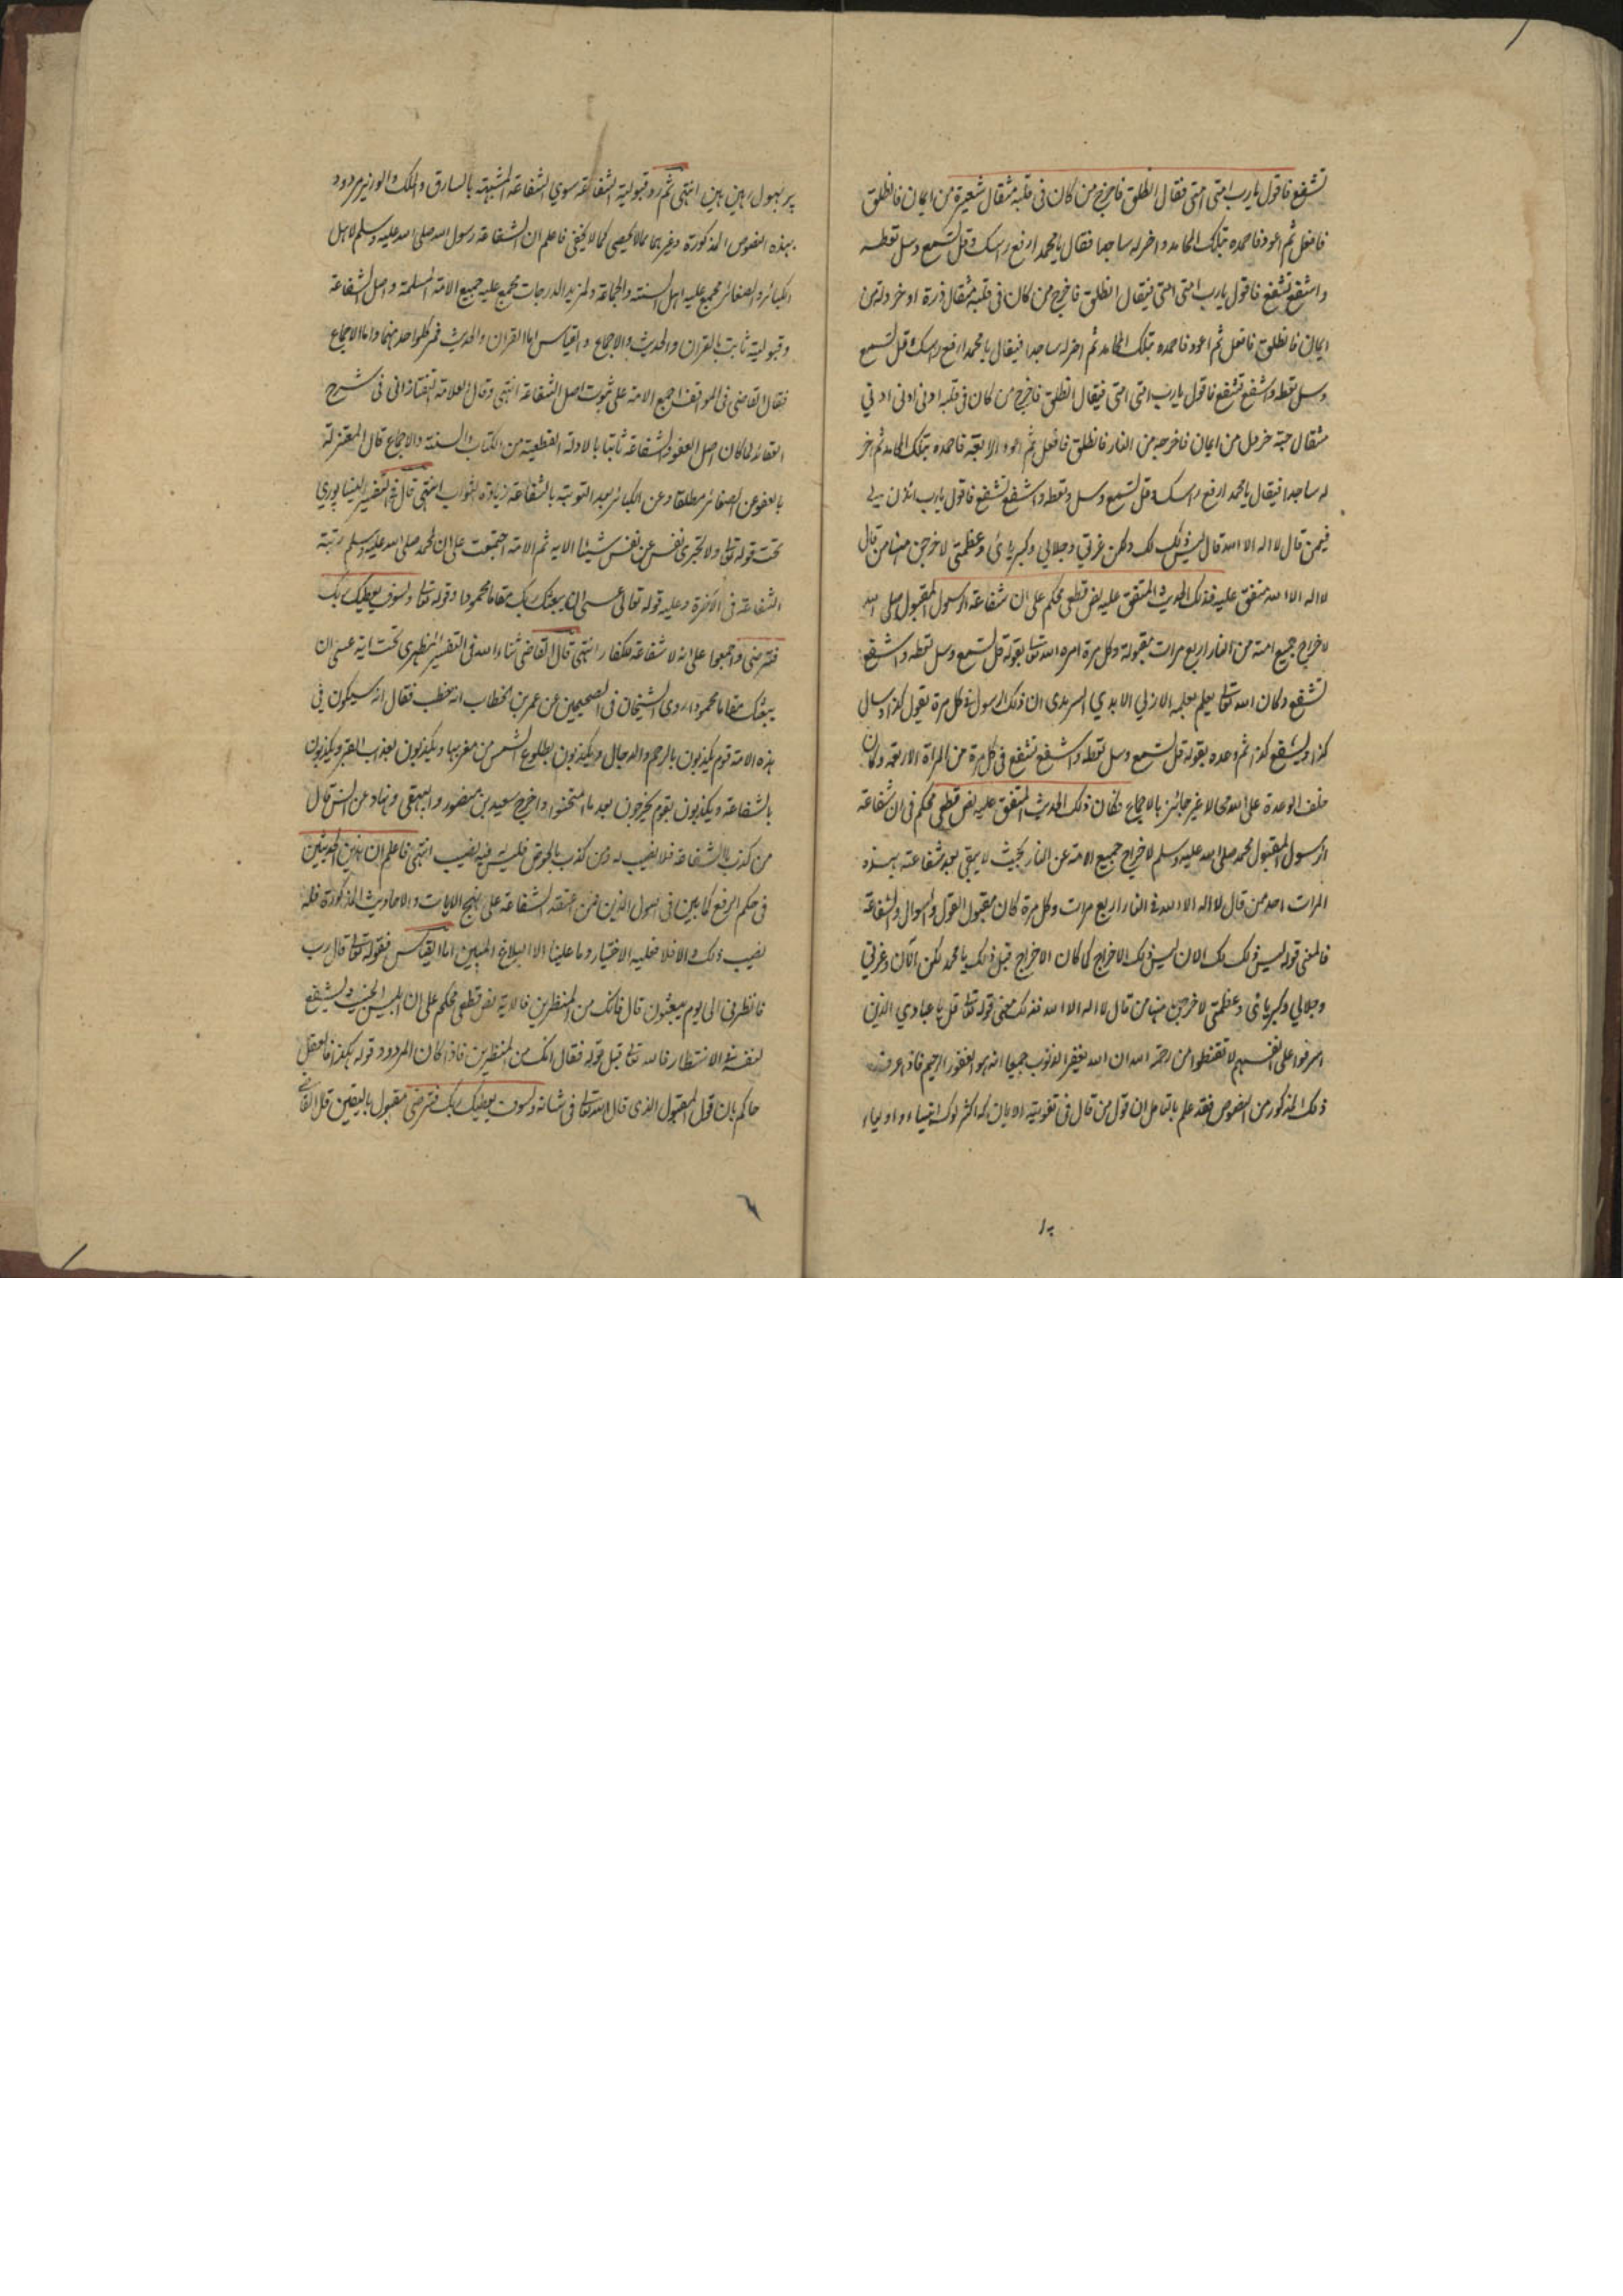 تشفع فاقول يارب امتى امتى فقال انطلق فاخرج من كان فى قلبه مثقال شعيرة من ايمان فانطلق
فافعل ثم اعود فاحمده بتلك المحامد واخر له ساجدا فقال يا محمد ارفع راسك وقل تسمع وسل تعطه
واشفع تشفع فاقول يارب امتى امتى فيقال انطلق فاخرج من كان فى قلبه مثقال ذرة او خردلة من
ايمان فانطلق فافعل ثم اعود فاحمده بتلك المحامد ثم اخر له ساجدا فيقال يا محمد ارفع راسك وقل تسمع
وسل تعطه واشفع تشفع فاقول يارب امتى امتى فيقال انطلق فاخرج من كان فى قلبه ادنى ادنى ادنى
مثقال حبة خردل من ايمان فاخرجه من النار فانطلق فافعل ثم اعود الرابعة فاحمده بتلك المحامد ثم اخر
له ساجدا فيقال يا محمد ارفع راسك وقل تسمع وسل وتعطه واشفع تشفع فاقول يارب ائذن لى
فيمن قال لا اله الا الله قال ليس ذلك لك ولكن عزتي وجلالي وكبريائى وعظمتى لاخرجن منها من قال
لا اله الا الله متفق عليه فذلك الحديث المتفق عليه نص قطعى محكم على ان شفاعة الرسول المقبول صلى الله
لاخراج جميع امته من النار اربع مرات مقبولة وكل مرة امره الله تعالى بقوله قل تسمع وسل تعطه واشفع
تشفع وكان الله تعالى يعلم بعلمه الازلي الابدي السرمدى ان ذلك الرسول فى كل مرة يقول كذا ويسال
كذا ويشفع كذا ثم وعده بقوله قل تسمع وسل تعطه واشفع تشفع فى كل مرة من المراة الاربعة وكان
خلف الوعدة على الله تعالى غير جائز بالاجماع فكان ذلك الحديث المتفق عليه نص قطعى محكم فى ان شفاعة
الرسول المقبول محمد صلى الله عليه وسلم لاخراج جميع الامة عن النار بحيث لا يبقى بعد شفاعته بهذه
المرات احد ممن قال لا اله الا الله فى النار اربع مرات وكل مرة كان مقبول القول والسوال والشفاعة
فالمعنى قوله ليس ذلك لك الان ليس ذلك الاخراج كما كان الاخراج قبل ذلك يا محمد لكن الآن وعزتي
وجلالي وكبريائى وعظمتى لاخرجن منها من قال لا اله الا الله فذلك معنى قوله تعالى قل يا عبادي الذين
اسرفوا على انفسهم لا تقنطوا من رحمة الله ان الله يغفر الذنوب جميعا انه هو الغفور الرحيم فاذا عرفت
ذلك المذكور من النصوص فقد علم بالتامل ان قول من قال فى تقوية الايمان كه اكثر لوگ انبياء و اولياء
پر بهول رہى ہين انتهى ثم رد قبولية الشفاعة سوي الشفاعة المشبهة بالسارق والملك والوزير مردود
بهذه النصوص المذكورة وغيرهما مما لا يحصى كما لا يخفى فاعلم ان الشفاعة رسول الله صلى الله عليه وسلم لاهل
الكبائر والصغائر مجمع عليه اهل السنة والجماعة ولمزيد الدرجات مجمع عليه جميع الامة المسلمة واصل الشفاعة
وقبولية ثابت بالقران والحديث والاجماع والقياس اما القران والحديث فمر كلوا حد منهما واما الاجماع
فقال القاضى فى المواقف اجمع الامة على ثبوت اصل الشفاعة انتهى وقال العلامة التفتازانى فى شرح
العقائد لما كان اصل العفو والشفاعة ثابتا بالادلة القطعية من الكتاب والسنة والاجماع قال المعتزلة
بالعفو عن الصغائر مطلقا وعن الكبائر بعد التوبة بالشفاعة زيادة الثواب انتهى قال فى التفسير النيسابوري
تحت قوله تعالى ولا تجزى نفس عن نفس شيئا الايه ثم الامة اجتمعت على ان لمحمد صلى الله عليه وسلم رتبة
الشفاعة فى الآخرة وعليه قوله تعالى عسى ان يبعثك ربك مقاما محمودا وقوله تعالى ولسوف يعطيك ربك
فترضى واجمعوا على انه لا شفاعة للكفار انتهى قال القاضى ثناء الله فى التفسير المظهرى تحت اية عسى ان
يبعثك مقاما محمودا روى الشيخان فى الصحيحين عن عمر بن الخطاب انه خطب فقال انه سيكون فى
هذه الامة قوم يكذبون بالرجم والدجال ويكذبون بطلوع الشمس من مغربها ويكذبون بعذاب القبر ويكذبون
بالشفاعة ويكذبون بقوم يخرجون بعد ما امتحشوا واخرج سعيد بن منصور والبيهقى وهناد عن انس قال
من كذب بالشفاعة فلا نصيب له ومن كذب بالحوض فليس فيه نصيب انتهى فاعلم ان هذين الحديثين
فى حكم الرفع كما بين فى اصول الدين فمن اعتقد الشفاعة على نهج الايات والاحاديث المذكورة فله
نصيب ذلك والا فلا فعليه الاختيار وما علينا الا البلاغ المبين اما القياس فقوله تعالى قال رب
فانظرنى الى يوم يبعثون قال فانك من المنظرين فالاية نص قطعى محكم على ان ابليس الخبيث يشفع
لنفسه الانتظار فالله تعالى قبل قوله فقال انك من المنظرين فاذا كان المردود قوله هكذا فالعقل
حاكم بان قول المقبول الذى قال الله تعالى فى شانه ولسوف يعطيك ربك فترضى مقبول باليقين قال القاضى